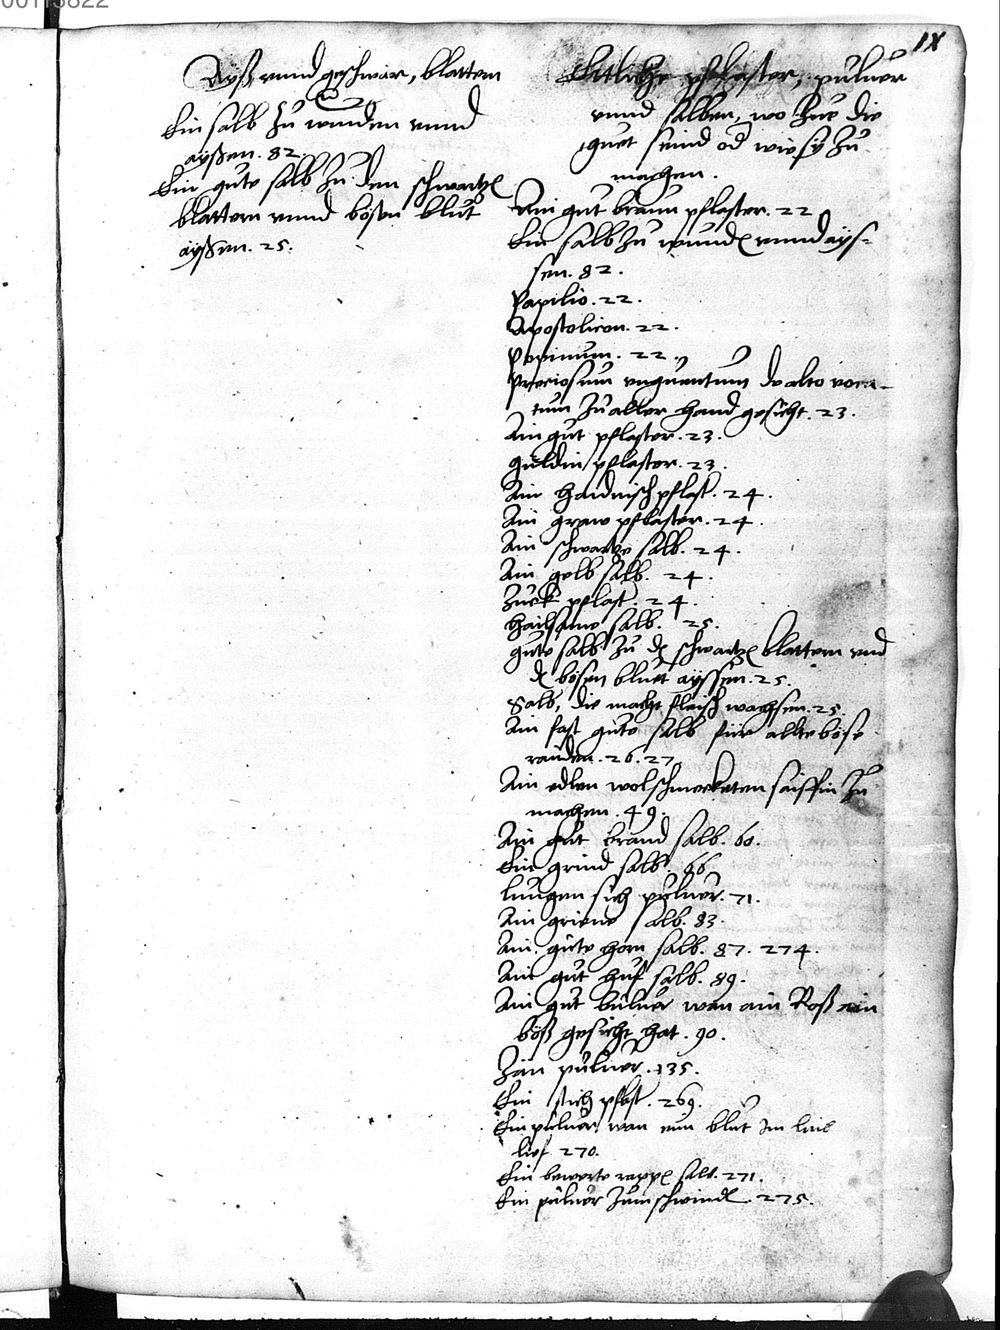 IX
Ayß vnnd geschwär, blattern
Ein salb zu wunden vnnd
ayßen. 82.
Ein gute salb zu den schwartzen
blattern vnnd bösen blut
ayßen. 25.
Ettliche pflaster, puluer
vnnd salben, wo zue die
guet seind od wie sy zu
machen.
Ain gut braun pflaster. 22
Ein salb zu wunden vnnd ays-
sen. 82.
Papilio. 22.
Apostolicon. 22.
Popinum. 22.
Preciosum vnguentum de alto voca-
tum zu aller hand gesücht. 23.
Ain gut pflaster. 23.
guldin pflaster. 23.
Ain haidnisch pflast. 24.
Ain graw pflaster. 24.
Ain schwartze salb. 24.
Ain gelb salb. 24.
Zuck pflast. 24.
Hailsame salb. 25.
gute salb zu den schwartzen blattern vnd
den bösen bluet ayssen. 25.
Salb, die macht fleisch wachsen. 25.
Ain fast gute salb für allte böse
rauden. 26. 27.
Ain edlen wolschmecketen saiffen zu
machen. 49.
Ain gut brand salb. 60.
Ein grind salb. 66
Lungen sich puluer. 71.
Ain griene salb. 83.
Ain gute horn salb. 87. 274.
Ain gut huf salb. 89.
Ain gut buluer wan ain Roß ain
böß gesicht hat. 90.
Zan puluer. 135.
Ein stich pflast. 269.
Ein puluer wan eim blut im leib
lief 270.
Ein bewerte rappen salb. 271.
Ein puluer zum schwindel. 275.